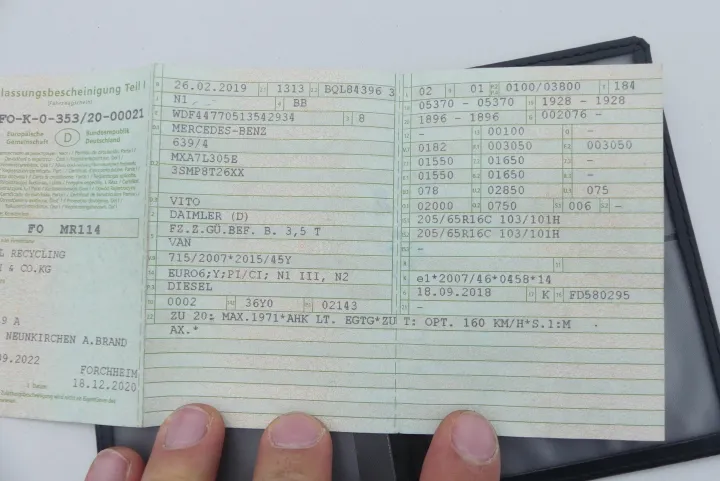 lassungsbescheinigung Teil I
(Fahrzeugschein)
FO-K-0-353/20-00021
Europäische Gemeinschaft D Bundesrepublik Deutschland
FO MR114
L RECYCLING
& CO.KG
9 A
NEUNKIRCHEN A.BRAND
09.2022
FORCHHEIM
18.12.2020
26.02.2019 1313 BQL84396 3
N1 BB
WDF44770513542934 8
MERCEDES-BENZ
639/4
MXA7L305E
3SMP8T26XX
VITO
DAIMLER (D)
FZ.Z.GÜ.BEF. B. 3,5 T
VAN
715/2007*2015/45Y
EURO6;Y;PI/CI; N1 III, N2
DIESEL
0002 36Y0 02143
02 01 0100/03800 184
05370 - 05370 1928 - 1928
1896 - 1896 002076 -
- 00100 -
0182 003050 003050
01550 01650 -
01550 01650 -
078 02850 075
02000 0750 006 -
205/65R16C 103/101H
205/65R16C 103/101H
-
e1*2007/46*0458*14
18.09.2018 K FD580295
-
ZU 20: MAX.1971*AHK LT. EGTG*ZU T: OPT. 160 KM/H*S.1:M
AX.*